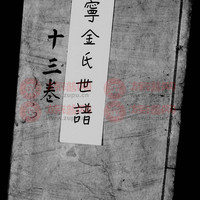 寧金氏世譜
十三巻